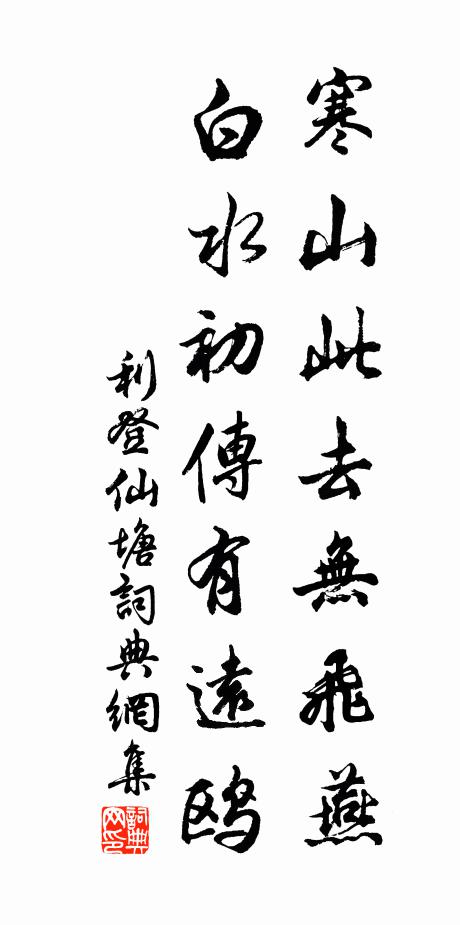 寒山此去無飛燕
白水初傳有遠鷗
利登仙塘詞典網集
詞典
网印